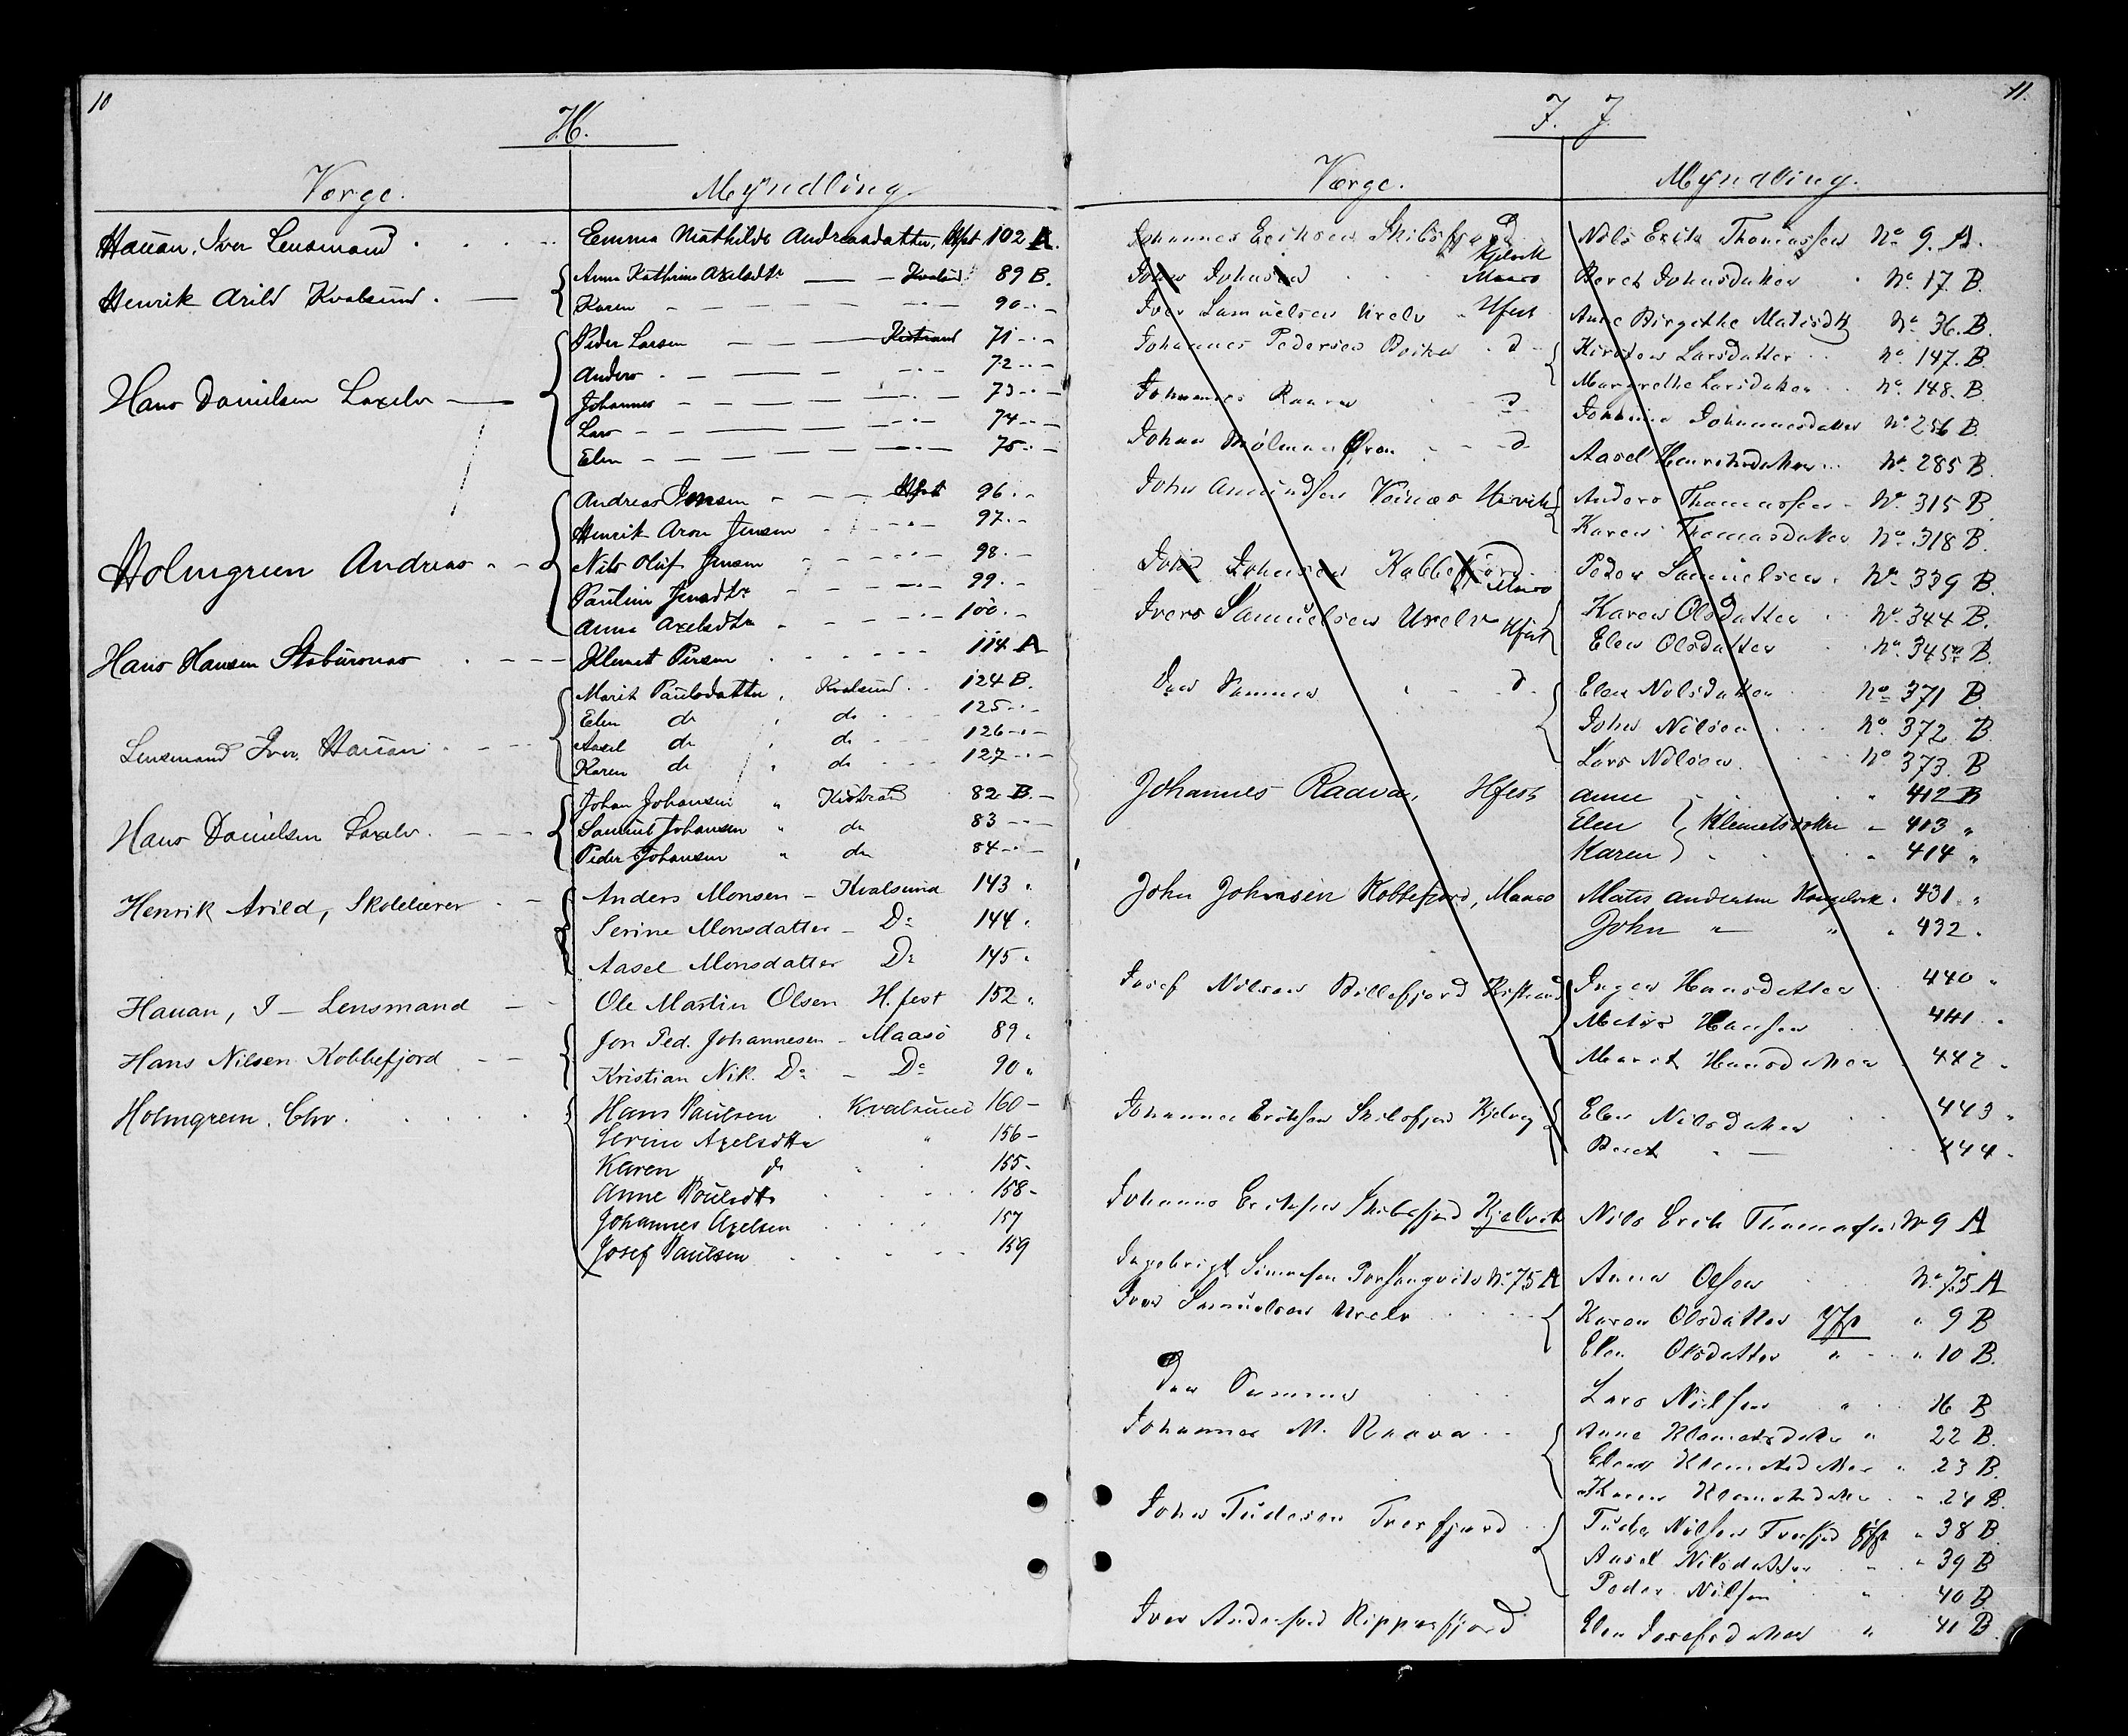 10
H.
Værge. Myndling
Hauan, Iver Lensmand Emma Mathilde Andreasdatter, Hfst 102 A.
Henrik Arild Kvalsund. Anna Kathrine Axelsdtr Kvalsd 89 B.
Karen 90
Hans Danielsen Laxelv Peder Larsen Kistrand 71
Anders 72
Johannes 73
Lars 74
Elen 75
Holmgreen Andreas Andreas Jensen Hfst 96
Henrik Aron Jensen 97
Nils Oluf Jensen 98
Pauline Jensdtr 99
Anna Axelsdtr 100
Hans Hansen Staburnæs Klemet Persen 114 A
Lensmand Iver Hauan Marit Paulsdatter, Kvalsund 124 B.
Elen do do 125
Aasel do do 126
Karen do do 127
Hans Danielsen Laxelv. Johan Johansen " Kistrand 82 B.
Samuel Johansen " do 83
Peder Johansen " do 84
Henrik Arild, Skolelærer Anders Monsen - Kvalsund 143 "
Serine Monsdatter - Do 144 "
Aasel Monsdatter Do 145 "
Hauan, I - Lensmand Ole Martin Olsen H.fest 152 "
Hans Nilsen Kobbefjord Jon Ped. Johannesen - Maasø 89 "
Kristian Nik. Do - Do 90 "
Holmgreen, Chr. Hans Paulsen Kvalsund 160 -
Serine Axelsdtr " 156 -
Karen do 155 -
Anne Poulsdtr 158 -
Johannes Axelsen 157
Josef Paulsen 159
11.
I. J
Værge. Myndling.
Johannes Eriksen Skibsfjord Kjelvik Nils Erik Thomassen No 9. A.
John Johnsen Maasø Beret Johnsdatter No 17. B.
Iver Samuelsen Urelv Hfest Anne Birgithe Matisdtr No 36. B.
Johannes Pedersen do Kirsten Larsdatter No 147. B.
Margrethe Larsdatter No 148. B.
Johannes Raava do Johanne Johannesdatter No 256 B.
Johan do Aasel Henriksdatter No 285 B.
John Amundsen Anders Thomassen No 315 B.
Karen Thomasdatter No 318 B.
John Johnsen Kobbefjord Maasø Peder Samuelsen No 339 B.
Ivers Samuelsen Urelv Hfest Karen Olsdatter No 344 B.
Elen Olsdatter No 345 B.
Den Samme do Elen Nilsdatter No 371 B.
John Nilsen No 372 B
Lars Nilsen No 373. B
Johannes Raava, Hfest Anne " 412 B
Elen Klemetsdatter " 413 "
Karen " 414 "
John Johnsen Kobbefjord, Maasø Mates Andersen " 431 "
John " " " 432 "
Josef Nilsen Billefjord Kistrand Inger Hansdatter 440 "
Matis Hansen 441 "
Marit Hansdatter 442 "
Johannes Eriksen Skibsfjord Kjelvig Elen Nilsdatter 443 "
Beret " 444 "
Johannes Eriksen Skibsfjord Kjelvik Nils Erik Thomassen No 9 A
Ingebrigt Simonsen Porsangvik No 75 A Anna Olsen No 75 A
Iver Samuelsen Urelv Karen Olsdatter Hfst " 9 B
Elen Olsdatter " " 10 B.
Den Samme Lars Nilsen " 16 B
Johannes M. Raava Anne Klemetsdatter " 22 B.
Elen Klemetsdatter " 23 B.
Karen Klemetsdatter " 24 B.
John Tudesen Trefjord Tude Nilsen Trefjord Hfst " 38 B
Aasel Nilsdatter " 39 B
Peder Nilsen " 40 B.
Iver Andersen Repparfjord Elen Josefsdatter " 41 B.